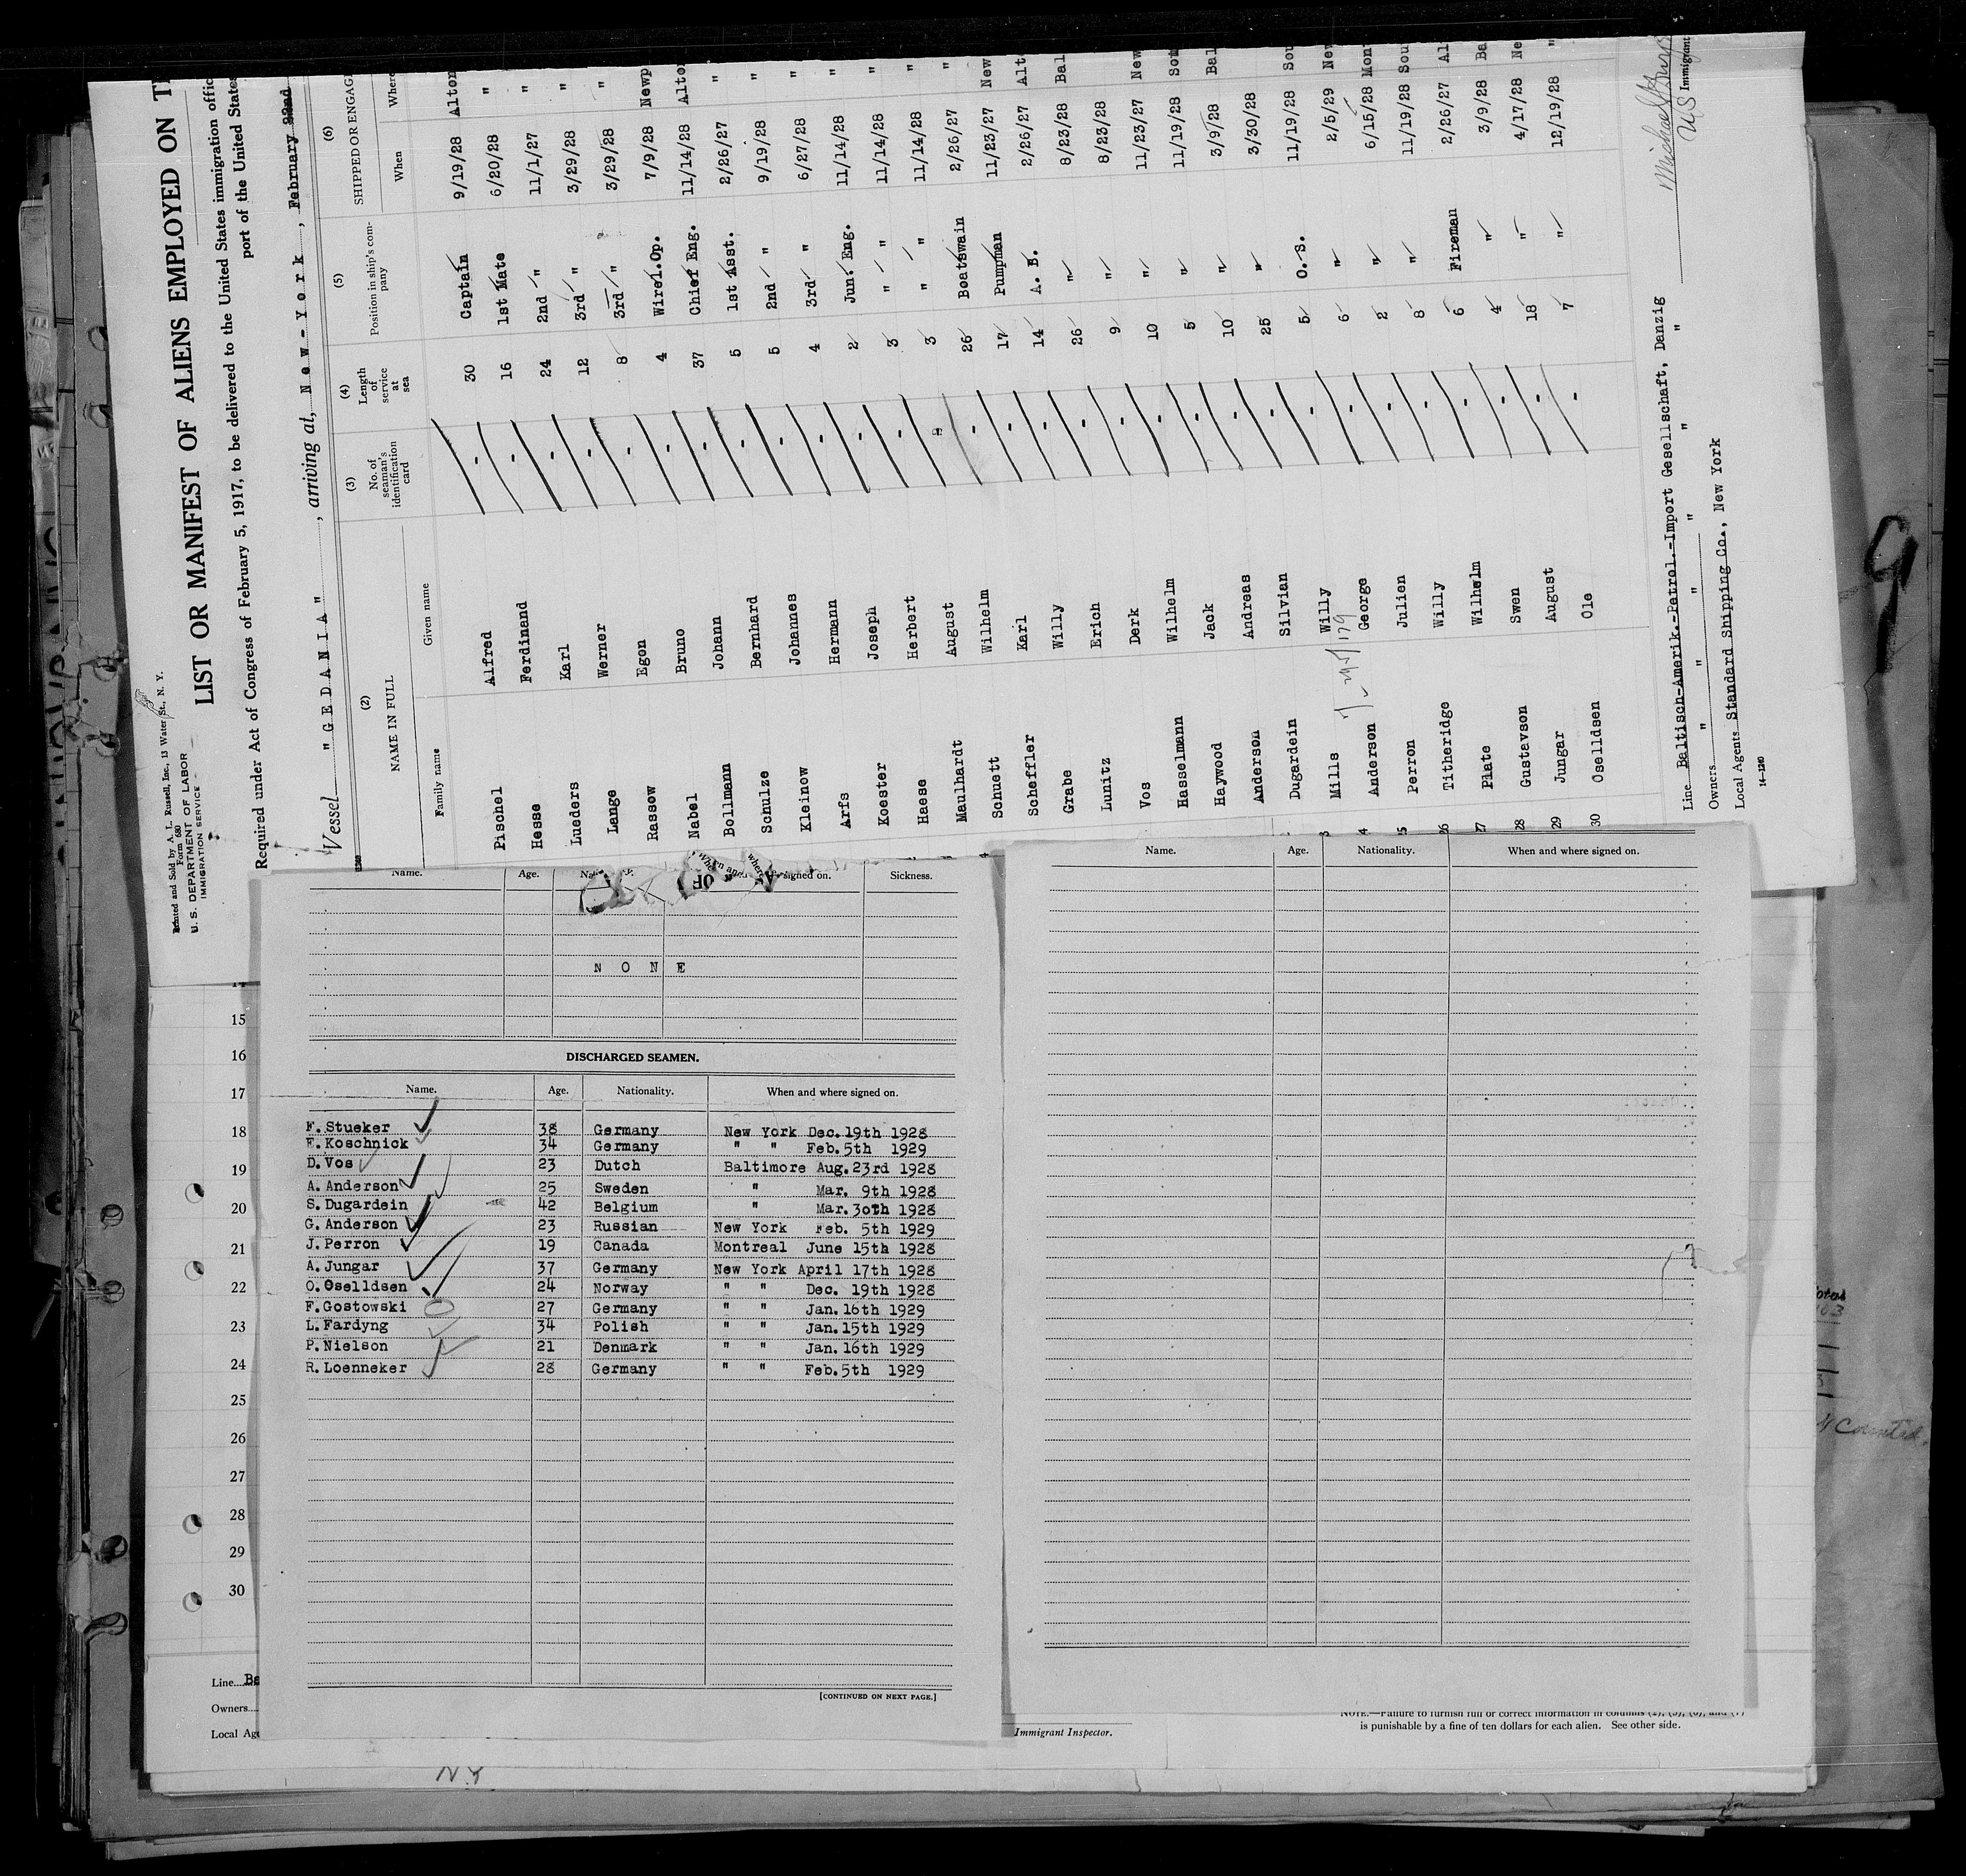 Printed and Sold by A. L. Russell, Inc., 13 Water St., N. Y.
Form 680
U. S. DEPARTMENT OF LABOR
IMMIGRATION SERVICE
LIST OR MANIFEST OF ALIENS EMPLOYED ON
Required under Act of Congress of February 5, 1917, to be delivered to the United States immigration offic
port of the United States
Vessel "GEDANIA", arriving at, New-York, February 22nd
(2) (3) (4) (5) (6)
NAME IN FULL No. of seaman's identification card Length of service at sea Position in ship's company SHIPPED OR ENGAG
Family name Given name When Where
Pischel Alfred 30 Captain 9/19/28 Alton
Hesse Ferdinand 16 1st Mate 6/20/28 "
Lueders Karl 24 2nd " 11/1/27 "
Lange Werner 12 3rd " 3/29/28 "
Rassow Egon 8 3rd " 3/29/28 "
Nabel Bruno 4 Wirel.Op. 7/9/28 Newp
Bollmann Johann 37 Chief Eng. 11/14/28 Alto
Schulze Bernhard 5 1st Asst. 2/26/27 "
Kleinow Johannes 5 2nd " 9/19/28 "
Arfs Hermann 4 3rd " 6/27/28 "
Koester Joseph 2 Jun. Eng. 11/14/28 "
Haese Herbert 3 " " 11/14/28 "
Maulhardt August 3 " " 11/14/28 "
Schuett Wilhelm 26 Boatswain 2/26/27 "
Scheffler Karl 17 Pumpman 11/23/27 New
Grabe Willy 14 A. B. 2/26/27 Alt
Lunitz Erich 26 " 8/23/28 Bal
Vos Derk 9 " 8/23/28
Hasselmann Wilhelm 10 " 11/23/27 New
Haywood Jack 5 " 11/19/28 Sou
Anderson Andreas 10 " 3/9/28 Bal
Dugardein Silvian 25 " 3/30/28
3 Mills Willy 5 O.S. 11/19/28 Sou
4 Anderson George 6 " 2/5/29 New
5 Perron Julien 2 " 6/15/28 Mon
26 Titheridge Willy 8 " 11/19/28 Sou
27 Plate Wilhelm 6 Fireman 2/26/27 Al
28 Gustavson Swen 4 " 3/9/28 Ba
29 Jungar August 18 " 4/17/28 Ne
30 Oselldsen Ole 7 " 12/19/28 "
Line Baltisch-Amerik.-Petrol.-Import Gesellschaft, Danzig
Owners " " " " " "
Local Agents Standard Shipping Co., New York
14-1240
US Immigrant
Name. Age. signed on. Sickness.
NONE
DISCHARGED SEAMEN.
Name. Age. Nationality. When and where signed on.
F. Stueker 38 Germany New York Dec. 19th 1928
E. Koschnick 34 Germany " " Feb. 5th 1929
D. Vos 23 Dutch Baltimore Aug. 23rd 1928
A. Anderson 25 Sweden " Mar. 9th 1928
S. Dugardein 42 Belgium " Mar. 30th 1928
G. Anderson 23 Russian New York Feb. 5th 1929
J. Perron 19 Canada Montreal June 15th 1928
A. Jungar 37 Germany New York April 17th 1928
O. Oselldsen 24 Norway " " Dec. 19th 1928
F. Gostowski 27 Germany " " Jan. 16th 1929
L. Fardyng 34 Polish " " Jan. 15th 1929
P. Nielson 21 Denmark " " Jan. 16th 1929
R. Loenneker 28 Germany " " Feb. 5th 1929
[CONTINUED ON NEXT PAGE.]
Name. Age. Nationality. When and where signed on.
15
16
17
18
19
20
21
22
23
24
25
26
27
28
29
30
Line Ba
Owners
Local Ag
Immigrant Inspector.
NOTE.—Failure to furnish full or correct information in columns (2), (3), (6), and (7)
is punishable by a fine of ten dollars for each alien. See other side.
N.Y
9
Counted